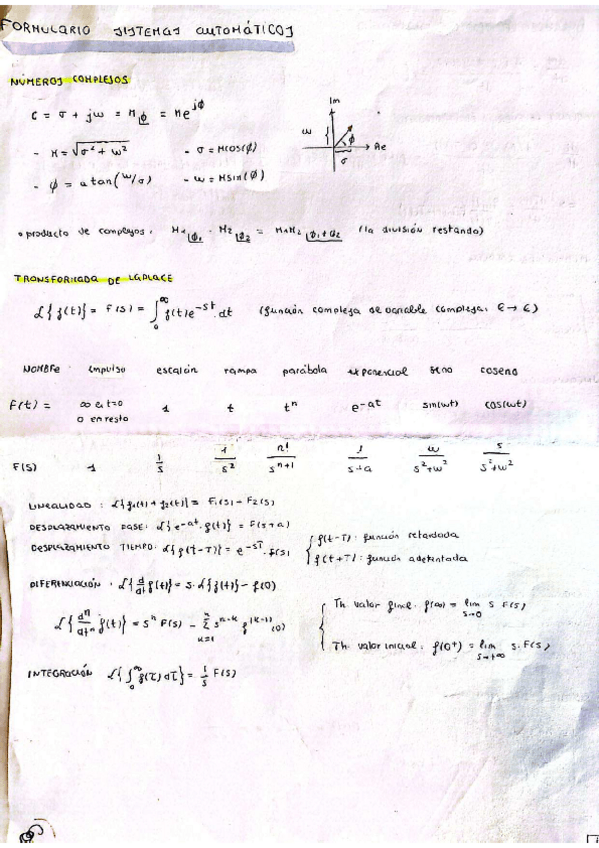 FORMULARIO SISTEMAS AUTOMÁTICOS
NÚMEROS COMPLEJOS
C = σ + jω = M|ϕ = Me^jϕ
- M = √(σ² + ω²) - σ = M cos(ϕ)
- ϕ = atan(ω/σ) - ω = M sin(ϕ)
Im
ω
ϕ
Re
σ
• producto de complejos. M1|ϕ1 · M2|ϕ2 = M1M2|ϕ1+ϕ2 (la división restando)
TRANSFORMADA DE LAPLACE
ℒ{f(t)} = F(s) = ∫₀^∞ f(t)e^-st. dt (función compleja de variable compleja. ℂ → ℂ)
NOMBRE impulso escalón rampa parábola exponencial seno coseno
F(t) = ∞ en t=0 1 t tⁿ e^-at sin(ωt) cos(ωt)
0 en resto
F(s) 1 1/s 1/s² n!/s^(n+1) 1/(s+a) ω/(s²+ω²) s/(s²+ω²)
LINEALIDAD : ℒ{f1(t) + f2(t)} = F1(s) - F2(s)
DESPLAZAMIENTO FASE: ℒ{e^-at. f(t)} = F(s+a)
DESPLAZAMIENTO TIEMPO: ℒ{f(t-T)} = e^-sT. f(s) { f(t-T): función retardada
f(t+T): función adelantada
DIFERENCIACIÓN . ℒ{d/dt f(t)} = s. ℒ{f(t)} - f(0)
ℒ{dⁿ/dtⁿ f(t)} = sⁿ F(s) - Σ_{k=1}^n s^(n-k) f^(k-1)(0)
{ Th. valor final. f(∞) = lim s→0 s F(s)
Th. valor inicial. f(0⁺) = lim s→+∞ s. F(s)
INTEGRACIÓN ℒ{∫₀^∞ f(τ) dτ} = 1/s F(s)
1